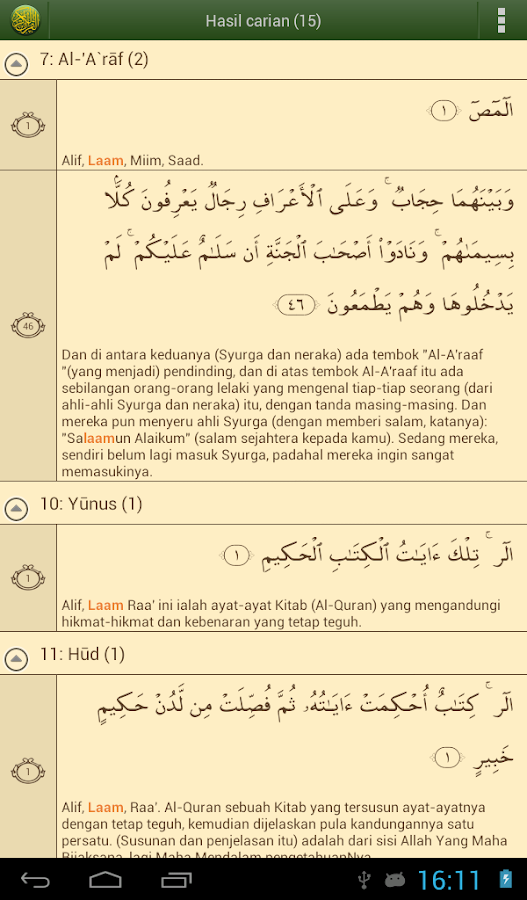 Hasil carian (15)
7: Al-'A`rāf (2)
الٓمٓصٓ ١
1
Alif, Laam, Miim, Saad.
وَبَيْنَهُمَا حِجَابٌ ۚ وَعَلَى ٱلْأَعْرَافِ رِجَالٌ يَعْرِفُونَ كُلًّۢا
بِسِيمَىٰهُمْ ۚ وَنَادَوْا۟ أَصْحَٰبَ ٱلْجَنَّةِ أَن سَلَٰمٌ عَلَيْكُمْ ۚ لَمْ
يَدْخُلُوهَا وَهُمْ يَطْمَعُونَ ٤٦
46
Dan di antara keduanya (Syurga dan neraka) ada tembok "Al-A'raaf
"(yang menjadi) pendinding, dan di atas tembok Al-A'raaf itu ada
sebilangan orang-orang lelaki yang mengenal tiap-tiap seorang (dari
ahli-ahli Syurga dan neraka) itu, dengan tanda masing-masing. Dan
mereka pun menyeru ahli Syurga (dengan memberi salam, katanya):
"Salaamun Alaikum" (salam sejahtera kepada kamu). Sedang mereka,
sendiri belum lagi masuk Syurga, padahal mereka ingin sangat
memasukinya.
10: Yūnus (1)
الٓر ۚ تِلْكَ ءَايَٰتُ ٱلْكِتَٰبِ ٱلْحَكِيمِ ١
1
Alif, Laam Raa' ini ialah ayat-ayat Kitab (Al-Quran) yang mengandungi
hikmat-hikmat dan kebenaran yang tetap teguh.
11: Hūd (1)
الٓر ۚ كِتَٰبٌ أُحْكِمَتْ ءَايَٰتُهُۥ ثُمَّ فُصِّلَتْ مِن لَّدُنْ حَكِيمٍ
خَبِيرٍ ١
1
Alif, Laam, Raa'. Al-Quran sebuah Kitab yang tersusun ayat-ayatnya
dengan tetap teguh, kemudian dijelaskan pula kandungannya satu
persatu. (Susunan dan penjelasan itu) adalah dari sisi Allah Yang Maha
Bijaksana, lagi Maha Mendalam pengetahuanNya
16:11